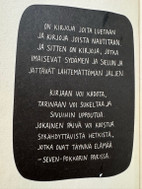 ON KIRJOJA JOITA LUETAAN
JA KIRJOJA JOISTA NAUTITAAN.
JA SITTEN ON KIRJOJA, JOTKA
IMAISEVAT SYDÄMEN JA SIELUN JA
JÄTTÄVÄT LÄHTEMÄTTÖMÄN JÄLJEN
KIRJAAN VOI KADOTA,
TARINAAN VOI SUKELTAA JA
SIVUIHIN UPPOUTUA
JOKAINEN PÄIVÄ VOI KOOSTUA
SYKÄHDYTTÄVISTÄ HETKISTÄ,
JOTKA OVAT TÄYNNÄ ELÄMÄÄ
- SEVEN-POKKARIN PARISSA.